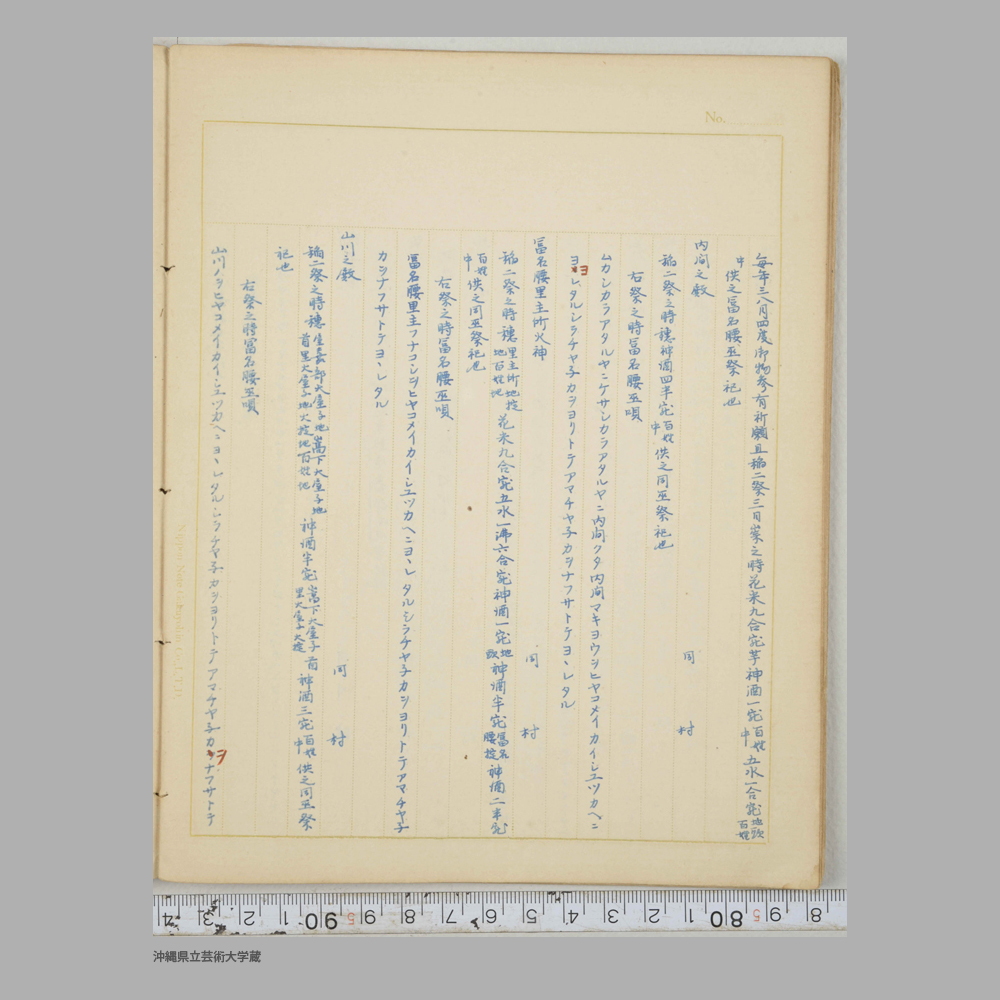 No.
毎年三八月四度御物参有祈願且稲二祭三日崇之時花米九合宛芋神酒一宛百姓中五水一合宛地頭百姓
中供之冨名腰巫祭祀也
内間之殿 同村
稲二祭之時穂神酒四半宛百姓中供之同巫祭祀也
右祭之時冨名腰巫唄
ムカシカラアタルヤニケサシカラアタルヤニ内間クダ内間マキヨウヲヒヤコメイカイシユツカヘニ
ヨヽレタルシラチヤ子カヲヨリトテアマチヤ子カヲナフサトテヨヽレタル
冨名腰里主所火神 同村
稲二祭之時穂里主所地掟地百姓地花米九合宛五水一沸六合宛神酒一宛地頭神酒半宛冨名腰掟神酒二半宛
百姓中供之同巫祭祀也
右祭之時冨名腰巫唄
冨名腰里主フナコシヲヒヤコメイカイシユツカヘニヨヽレタルシラチヤ子カヲヨリトテアマチヤ子
カヲナフサトテヨヽレタル
山川之殿 同村
稲二祭之時穂
首里大屋子地大掟地百姓地神酒半宛嵩下大屋子里大屋子大掟首神酒三宛百姓中供之同巫祭
祀也
右祭之時冨名腰巫唄
山川ノヲヒヤコメイカイシユツカヘニヨヽレタルシラチヤ子カヲヨリトテアマチヤ子カヲナフサトテ
ヨ
ヲ
4 3 2 1 90 5 9 8 7 6 5 4 3 2 1 80 5 9 8
沖縄県立芸術大学蔵